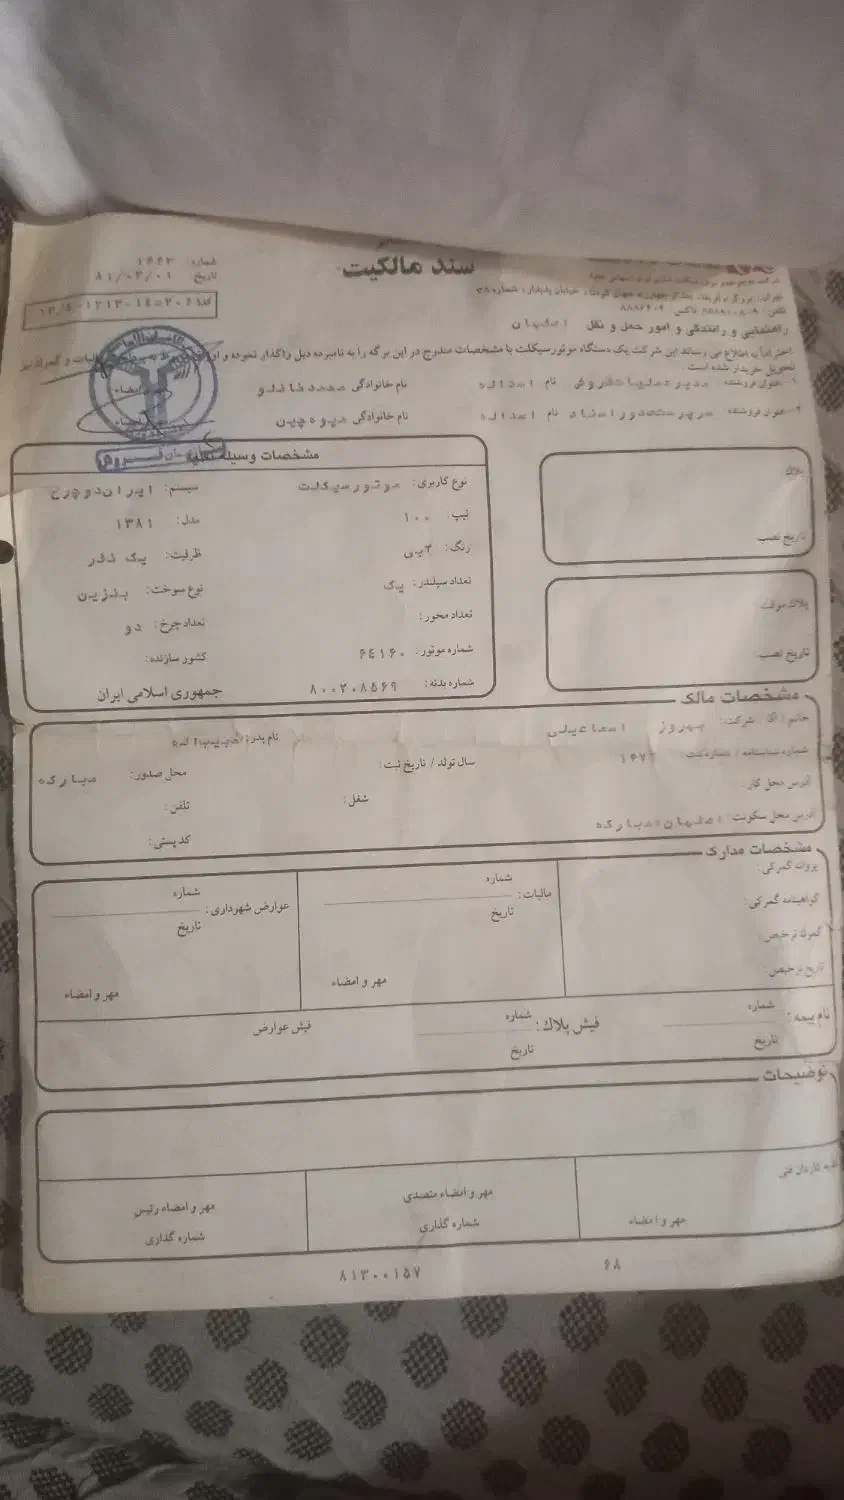 سند مالکیت
شماره: ۱۶۴۳
تاریخ: ۸۱/۰۲/۰۱
راهنمایی و رانندگی و امور حمل و نقل اصفهان
احتراماً به اطلاع می رساند این شرکت یک دستگاه موتورسیکلت با مشخصات مندرج در این برگه را به نامبرده ذیل واگذار نموده و
تحویل خریدار شده است
۱- عنوان فروشنده: مدیر عملیات فروش نام اسداله نام خانوادگی محمدخانلو
۲- عنوان فروشنده: سرپرست صدور اسناد نام اسداله نام خانوادگی میوه چین
پلاک
تاریخ نصب
پلاک موقت
تاریخ نصب
مشخصات وسیله نقلیه
نوع کاربری: موتورسیکلت سیستم: ایران دوچرخ
تیپ: ۱۰۰ مدل: ۱۳۸۱
رنگ: آبی ظرفیت: یک نفر
تعداد سیلندر: یک نوع سوخت: بنزین
تعداد محور: تعداد چرخ: دو
شماره موتور: ۶۴۱۶۰ کشور سازنده:
شماره بدنه: ۸۰۰۲۰۸۵۶۹ جمهوری اسلامی ایران
مشخصات مالک
خانم / آقا / شرکت: بهروز اسماعیلی نام پدر: حبیب اله
شماره شناسنامه / شماره ثبت: سال تولد / تاریخ ثبت: محل صدور: مبارکه
آدرس محل کار: شغل: تلفن:
آدرس محل سکونت: اصفهان مبارکه کد پستی:
مشخصات مدارک
پروانه گمرکی:
گواهینامه گمرکی:
گمرک ترخیص:
تاریخ ترخیص:
مالیات: شماره
تاریخ
مهر و امضاء
عوارض شهرداری: شماره
تاریخ
مهر و امضاء
نام بیمه: شماره
تاریخ
فیش پلاک: شماره
تاریخ
فیش عوارض
توضیحات
مهر و امضاء
مهر و امضاء متصدی
شماره گذاری
مهر و امضاء رئیس
شماره گذاری
۶۸
۸۱۳۰۰۱۵۷